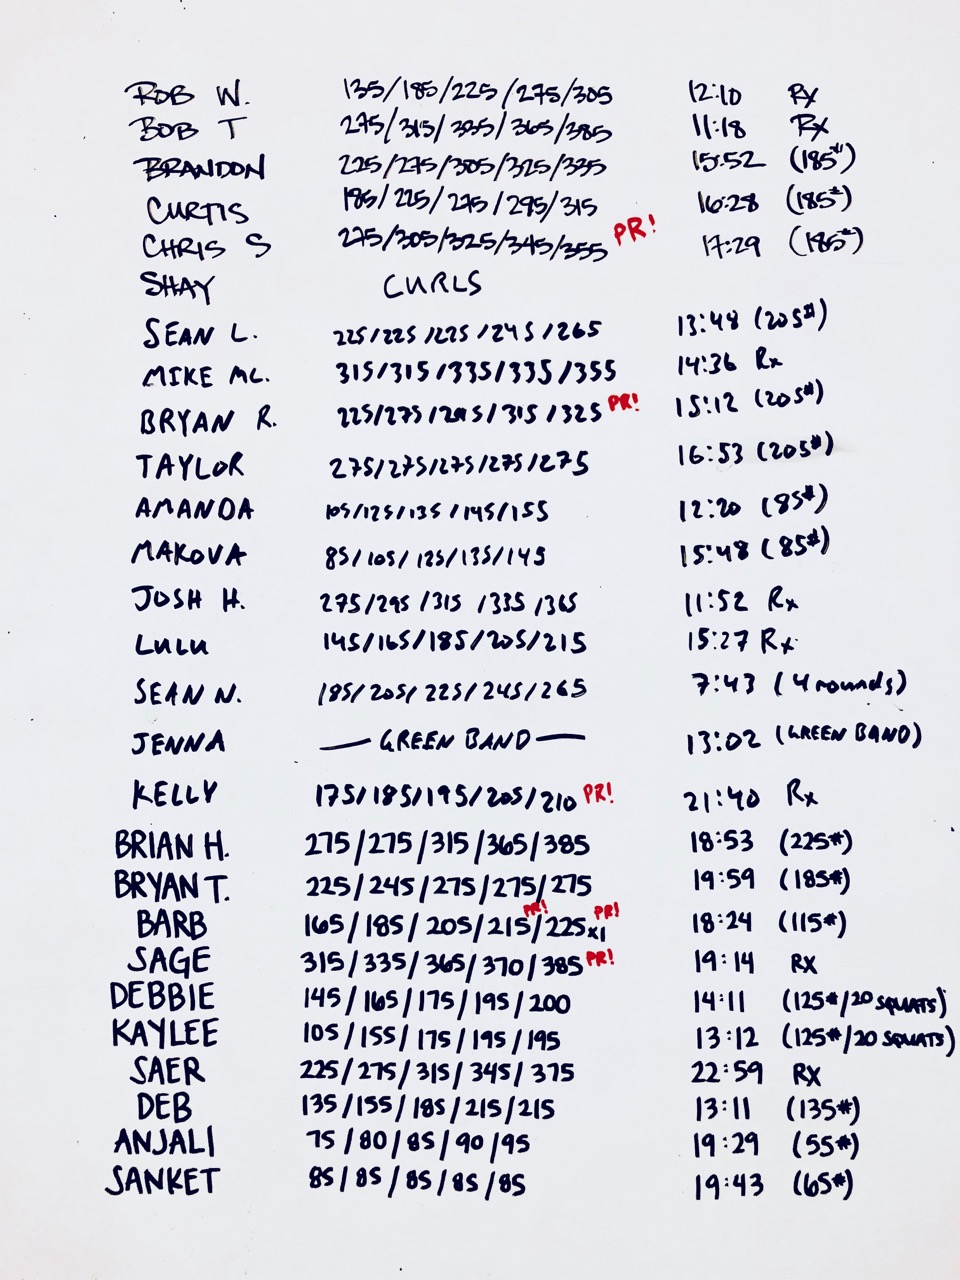 ROB W. 135/185/225/275/305 12:10 Rx
BOB T 275/315/335/365/385 11:18 Rx
BRANDON 225/275/305/325/335 15:52 (185#)
CURTIS 185/225/275/295/315 16:28 (185#)
CHRIS S 275/305/325/345/355 PR! 17:29 (185#)
SHAY CURLS
SEAN L. 225/225/225/245/265 13:48 (205#)
MIKE MC. 315/315/335/335/355 14:36 Rx
BRYAN R. 225/275/295/315/325 PR! 15:12 (205#)
TAYLOR 275/275/275/275/275 16:53 (205#)
AMANDA 105/125/135/145/155 12:20 (85#)
MAKOVA 85/105/125/135/145 15:48 (85#)
JOSH H. 275/295/315/335/365 11:52 Rx
LULU 145/165/185/205/215 15:27 Rx
SEAN N. 185/205/225/245/265 7:43 (4 rounds)
JENNA — GREEN BAND — 13:02 (GREEN BAND)
KELLY 175/185/195/205/210 PR! 21:40 Rx
BRIAN H. 275/275/315/365/385 18:53 (225#)
BRYAN T. 225/245/275/275/275 19:59 (185#)
BARB 165/185/205/215 PR!/225x1 PR! 18:24 (115#)
SAGE 315/335/365/370/385 PR! 19:14 RX
DEBBIE 145/165/175/195/200 14:11 (125#/20 SQUATS)
KAYLEE 105/155/175/195/195 13:12 (125#/20 SQUATS)
SAER 225/275/315/345/375 22:59 RX
DEB 135/155/185/215/215 13:11 (135#)
ANJALI 75/80/85/90/95 19:29 (55#)
SANKET 85/85/85/85/85 19:43 (65#)